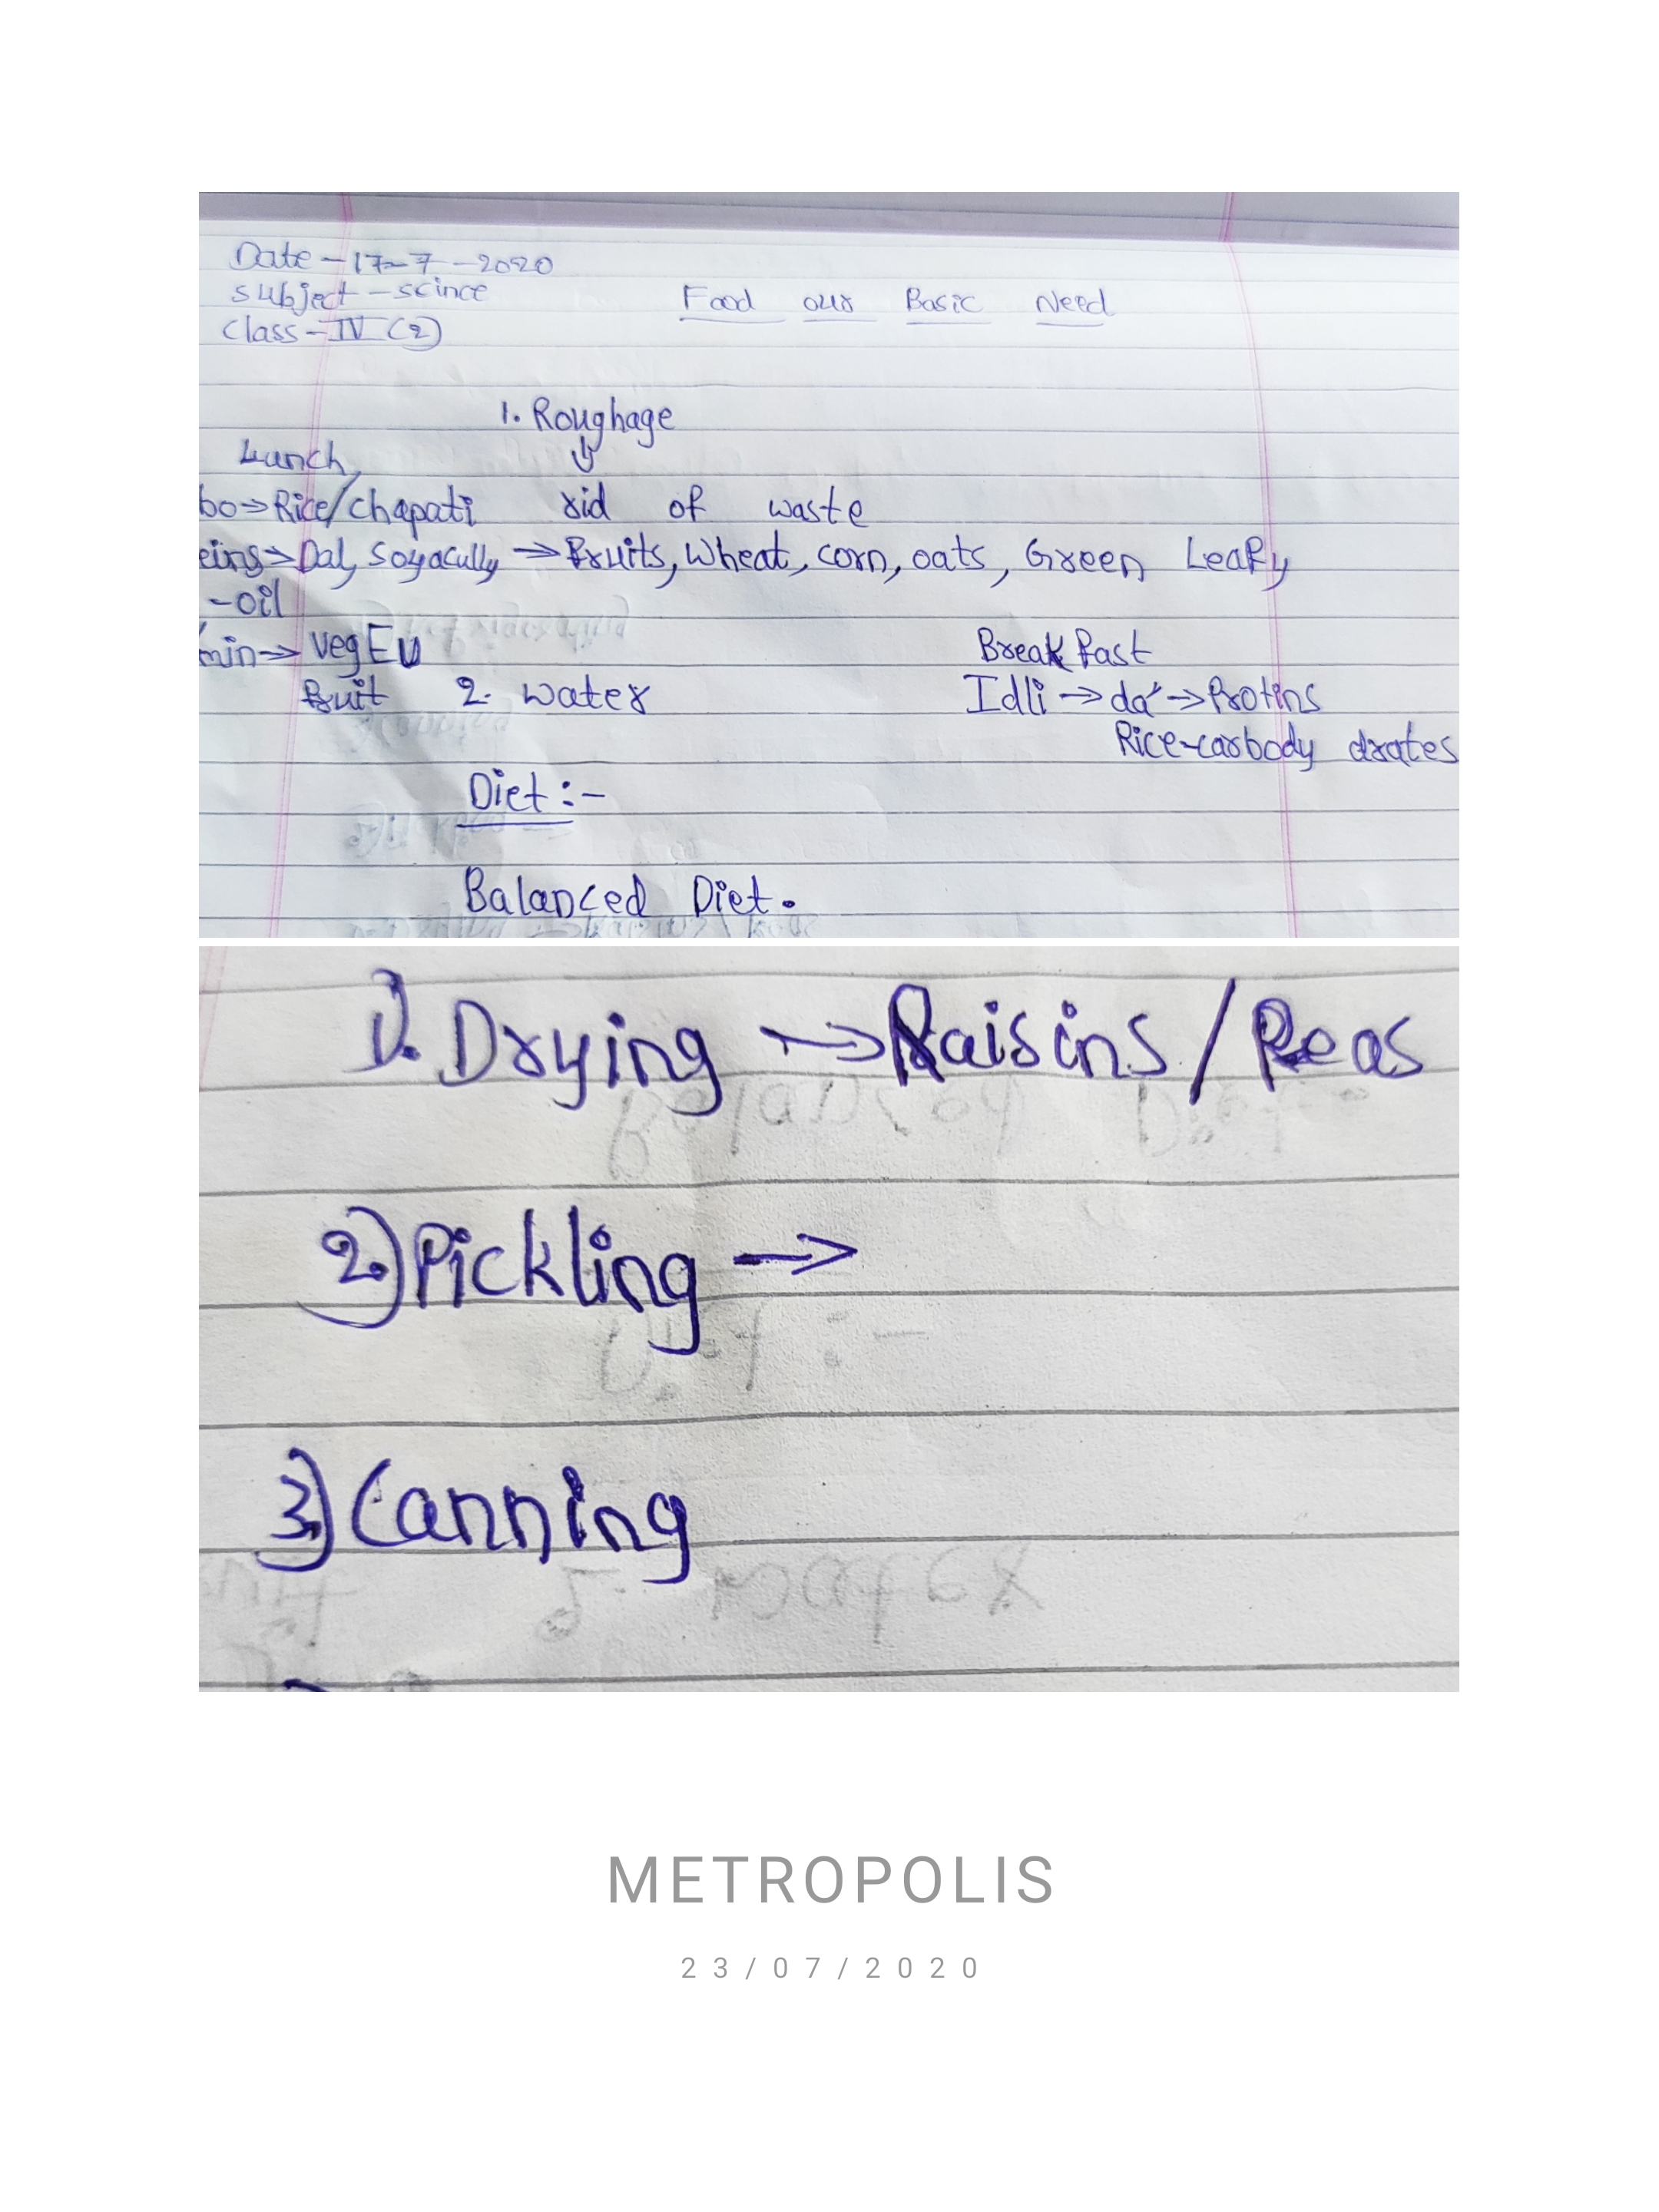 Date - 17-7-2020
Subject - scince
Class - IV (2)
Food our Basic Need
1. Roughage
Lunch
bo→Rice/chapati rid of waste
eins→Dal, Soyacully →Fruits, Wheat, corn, oats, Green Leafy
-oil
min→ veg
fruit 2. water
Break fast
Idli → da' → Protins
Rice-carbody drates
Diet :-
Balanced Diet.
1). Drying → Raisins / Peas
2) Pickling →
3) Canning
METROPOLIS
23/07/2020